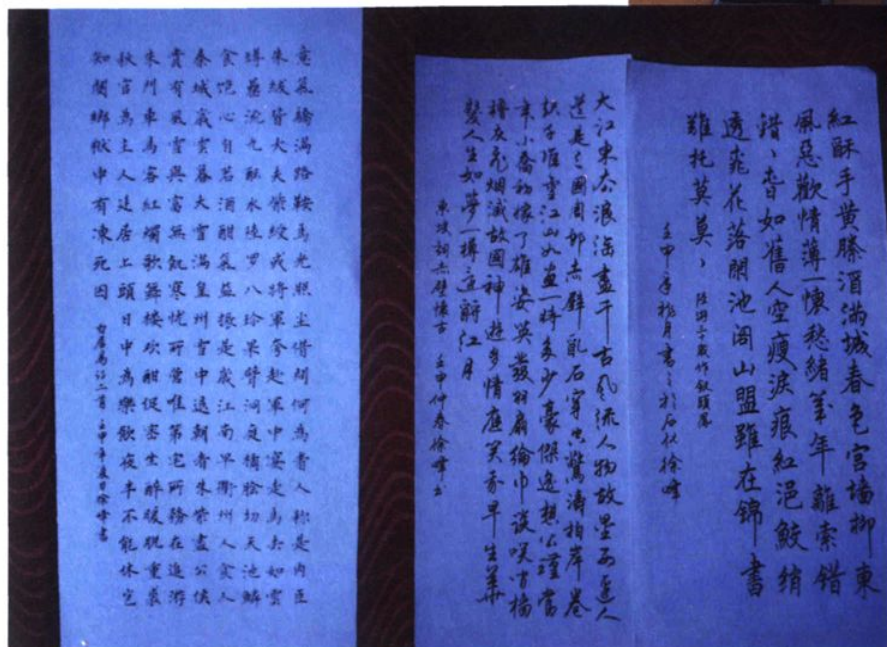 紅酥手黄縢酒滿城春色宮墻柳東
風惡歡情薄一懷愁緒幾年離索錯
錯〻春如舊人空瘦淚痕紅浥鮫綃
透桃花落閑池閣山盟雖在錦書
難托莫莫〻 陸游二十歲作釵頭鳳
壬申年桃月書之於石伏徐峰
大江東去浪淘盡千古風流人物故壘西邊人
道是三國周郎赤壁亂石穿空驚濤拍岸卷
起千堆雪江山如畫一時多少豪傑遙想公瑾當
年小喬初嫁了雄姿英發羽扇綸巾談笑間檣
櫓灰飛烟滅故國神遊多情應笑我早生華
髮人生如夢一樽還酹江月
東坡詞赤壁懷古 壬申仲春徐峰書
意氣驕滿路鞍馬光照塵借問何為者人稱是内臣
朱紱皆大夫紫綬或將軍夸赴軍中宴走馬去如雲
罇罍溢九醞水陸羅八珍果擘洞庭橘膾切天池鱗
食飽心自若酒酣氣益振是歲江南旱衢州人食人
秦城歲云暮大雪滿皇州雪中退朝者朱紫盡公侯
貴有風雪興富無飢寒憂所營唯第宅所務在追游
朱門車馬客紅燭歌舞樓歡酣促密坐醉暖脫重裘
秋官為主人廷居上頭日中為樂飲夜半不能休豈
知閿鄉獄中有凍死囚 白居易詩二首壬申年夏日徐峰書